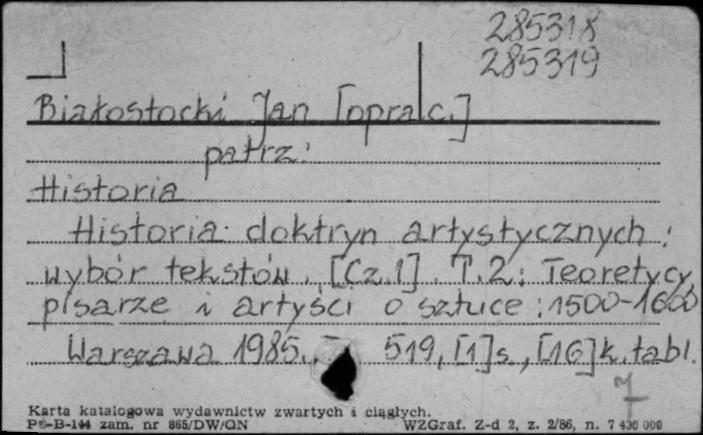 285318
285319
Białostocki Jan [oprac.]
patrz:
Historia
Historia doktryn artystycznych :
wybór tekstów. [Cz.1]. T.2: Teoretycy,
pisarze i artyści o sztuce : 1500-1600
Warszawa 1985. - 519, [1] s., [16] k. tabl.
7
Karta katalogowa wydawnictw zwartych i ciągłych.
Pu-B-144 zam. nr 865/DW/GN WZGraf. Z-d 2, z. 2/86, n. 7 430 000